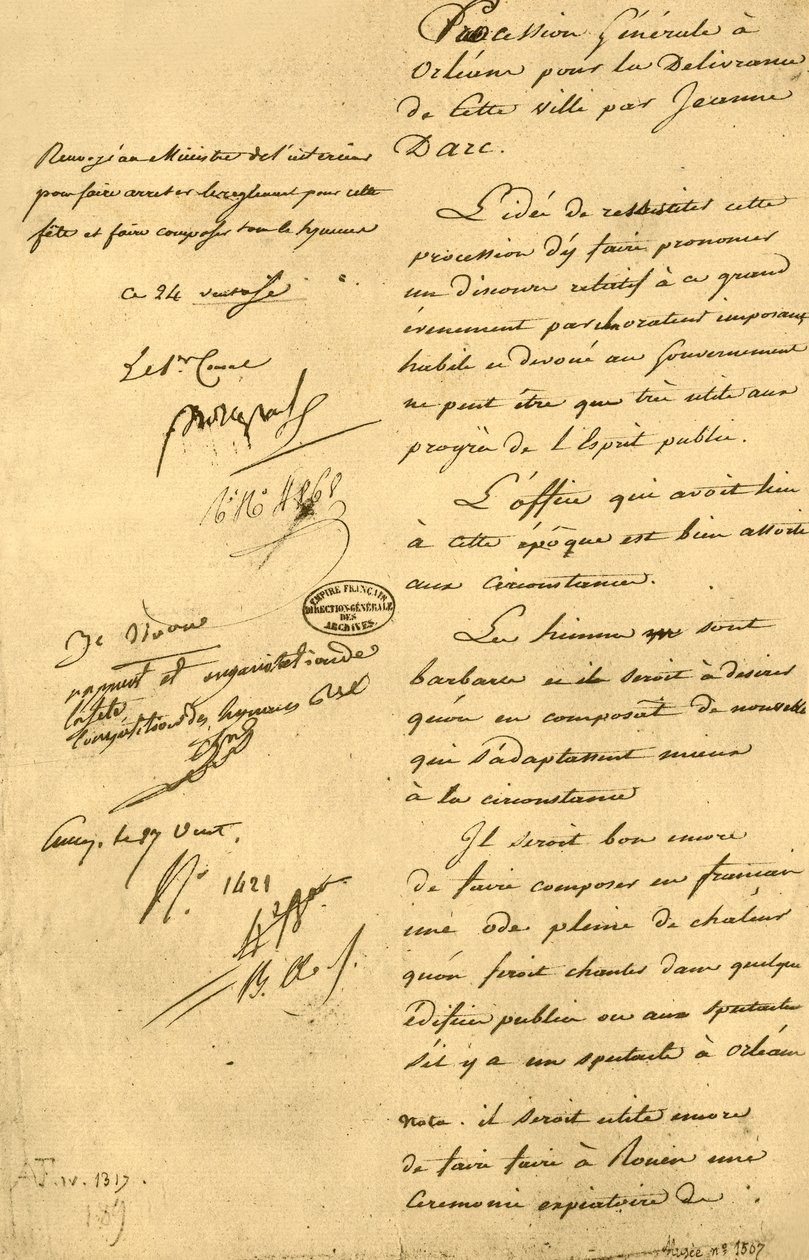 Procession Générale à
Orléans pour la Délivrance
de Cette ville par Jeanne
Darc.
L'idée de ressusciter cette
procession d'y faire prononcer
un discours relatif à ce grand
évenement par un orateur imposant
habile et devoué au Gouvernement
ne peut être que très utile aux
progrès de l'Esprit public.
L'office qui avoit lieu
à cette époque est bien assorti
aux circonstances.
Les himnes sont
barbares et il seroit à desirer
qu'on en composât de nouvelles
qui s'adaptassent mieux
à la circonstance
Il seroit bon encore
de faire composer en français
une ode pleine de chaleur
qu'on feroit chanter dans quelque
édifice public ou aux spectacles
s'il y a un spectacle à Orléans
Nota. il seroit utile encore
de faire faire à Rouen une
Ceremonie expiatoire de
Renvoyé au Ministre de l'interieur
pour faire arreter le reglement pour cette
fête et faire composer les hymnes
ce 24 ventose
Le 1er Consul
Bonaparte
Nº 4868
EMPIRE FRANÇAIS
DIRECTION GÉNÉRALE
DES
ARCHIVES
rapport et organisation de
la fête
Composition des hymnes
le 27 Vent.
Nº 1421
B. A.
AF. IV. 1317.
189
Musée nº 1507